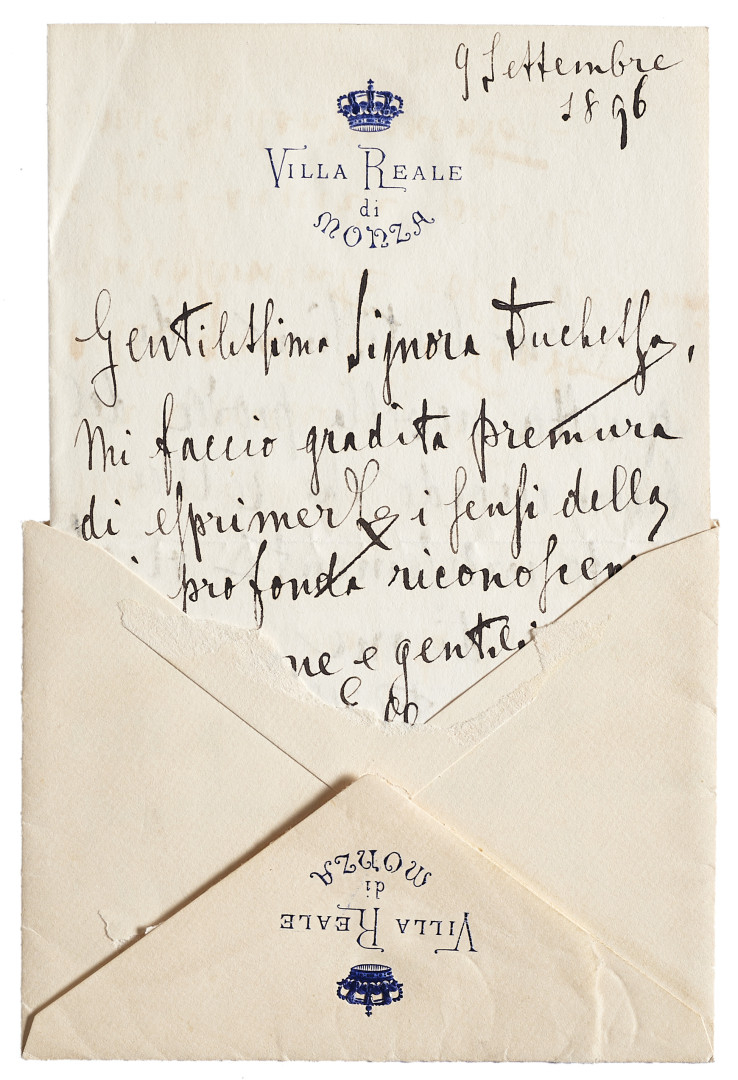 9 Settembre
1896
VILLA REALE
di
MONZA
Gentilissima Signora Duchessa,
Mi faccio gradita premura
di esprimerLe i sensi della
profonda riconoscen
ne e gentil
VILLA REALE
di
MONZA